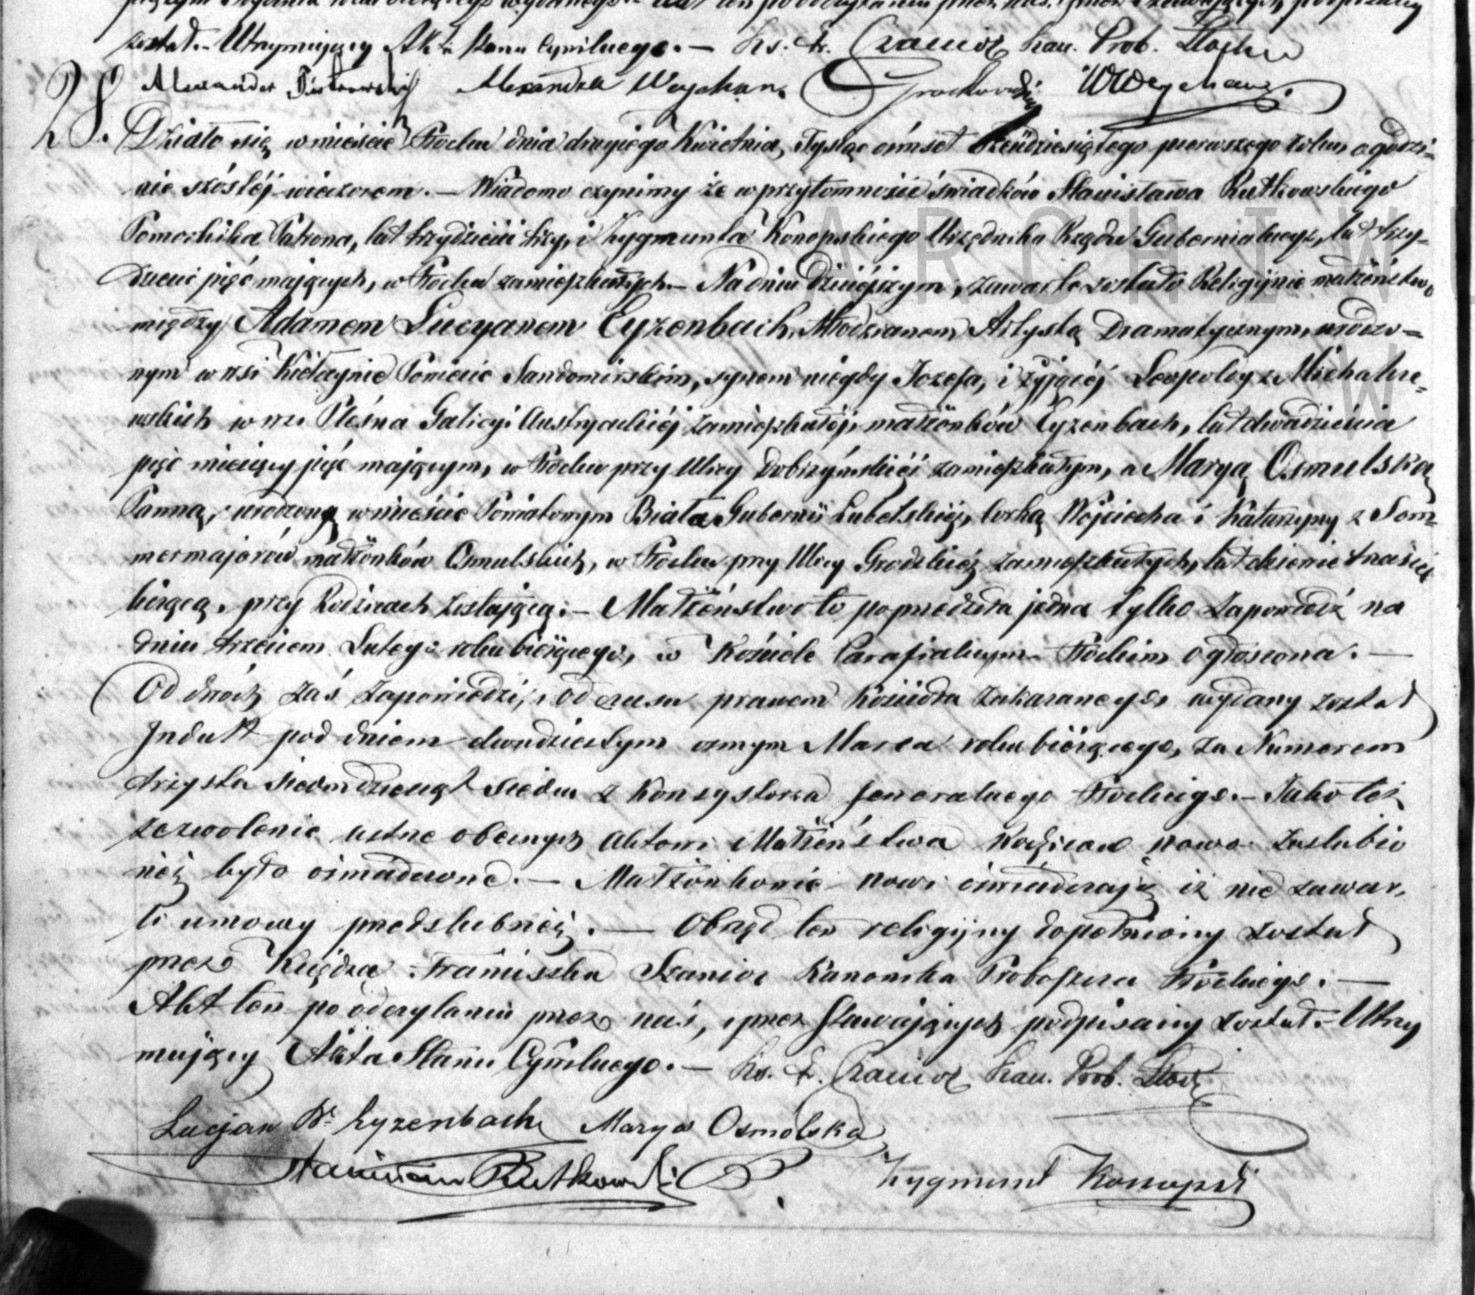 został. – Utrzymujący Akta Stanu Cywilnego. – Ks. F. Kan. Prob. Płocki
Alexander Alexandra Weychan.
28. Działo się w mieście Płocku dnia drugiego Kwietnia, tysiąc ośmset sześćdziesiątego pierwszego roku, o godzi-
nie szóstéj wieczorem. – Wiadomo czynimy że w przytomności świadków Stanisława Rutkowskiego
Pomocnika Patrona, lat trzydzieści trzy, i Zygmunta Konopskiego Urzędnika Rządu Gubernialnego, lat trzy-
dzieści pięć mających, w Płocku zamieszkałych. – Na dniu dzisiéjszym, zawarte zostało Religijnie małżeństwo
między Adamem Lucyanem Eyzenbach, Młodzianem, Artystą Dramatycznym, urodzo-
nym w wsi Powiecie Sandomirskim, synem niegdy Józefa, i żyjącéj Leopoldy z Michalcze-
wskich w wsi Pleśna Galicyi Austryackiéj zamieszkałéj, małżonków Eyzenbach, lat dwadzieścia
pięć miesięcy pięć mającym, w Płocku przy Ulicy Dobrzyńskiéj zamieszkałym, a Maryą Osmulską
Panną, urodzoną w mieście Powiatowym Biała Gubernii Lubelskiéj, córką Wojciecha i Katarzyny z Som-
mermajerów małżonków Osmulskich, w Płocku przy Ulicy Grodzkiéj zamieszkałych, lat dziewiętnaście
liczącą, przy Rodzicach zostającą. – Małżeństwo to poprzedziła jedna tylko zapowiedź na
dniu trzecim Lutego roku bieżącego, w Kościele Parafialnym Płockim ogłoszona. –
Od dwóch zaś zapowiedzi, i od czasu prawem Kościoła zakazanego, wydany został
Indult pod dniem dwudziestym osmym Marca roku bieżącego, za Numerem
trzysta siedmdziesiąt siedm z Konsystorza Jeneralnego Płockiego. – Jako też
zezwolenie ustne obecnych Aktowi Małżeństwa Rodziców nowo zaślubio
néj było oświadczone. – Małżonkowie nowi oświadczają iż nie zawar-
li umowy przedślubnéj. – Obrząd ten religijny dopełniony został
przez Księdza Franciszka Kanonika Proboszcza Płockiego. –
Akt ten po odczytaniu przez nas, i przez Stawających podpisany został. – Utrzy
mujący Akta Stanu Cywilnego. – Ks. F. Kan. Prob. Płocki
Lucjan Eyzenbach Marya Osmolska
Stanisław Rutkowski Zygmunt Konopski
ARCHIW
W